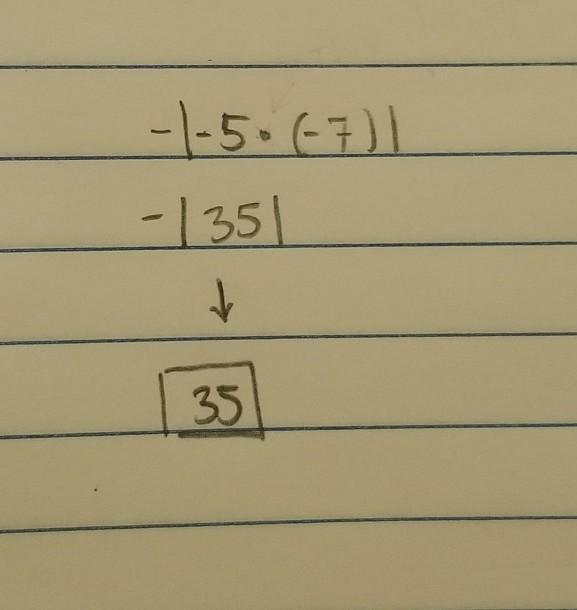 -|-5·(-7)|
-|35|
↓
35